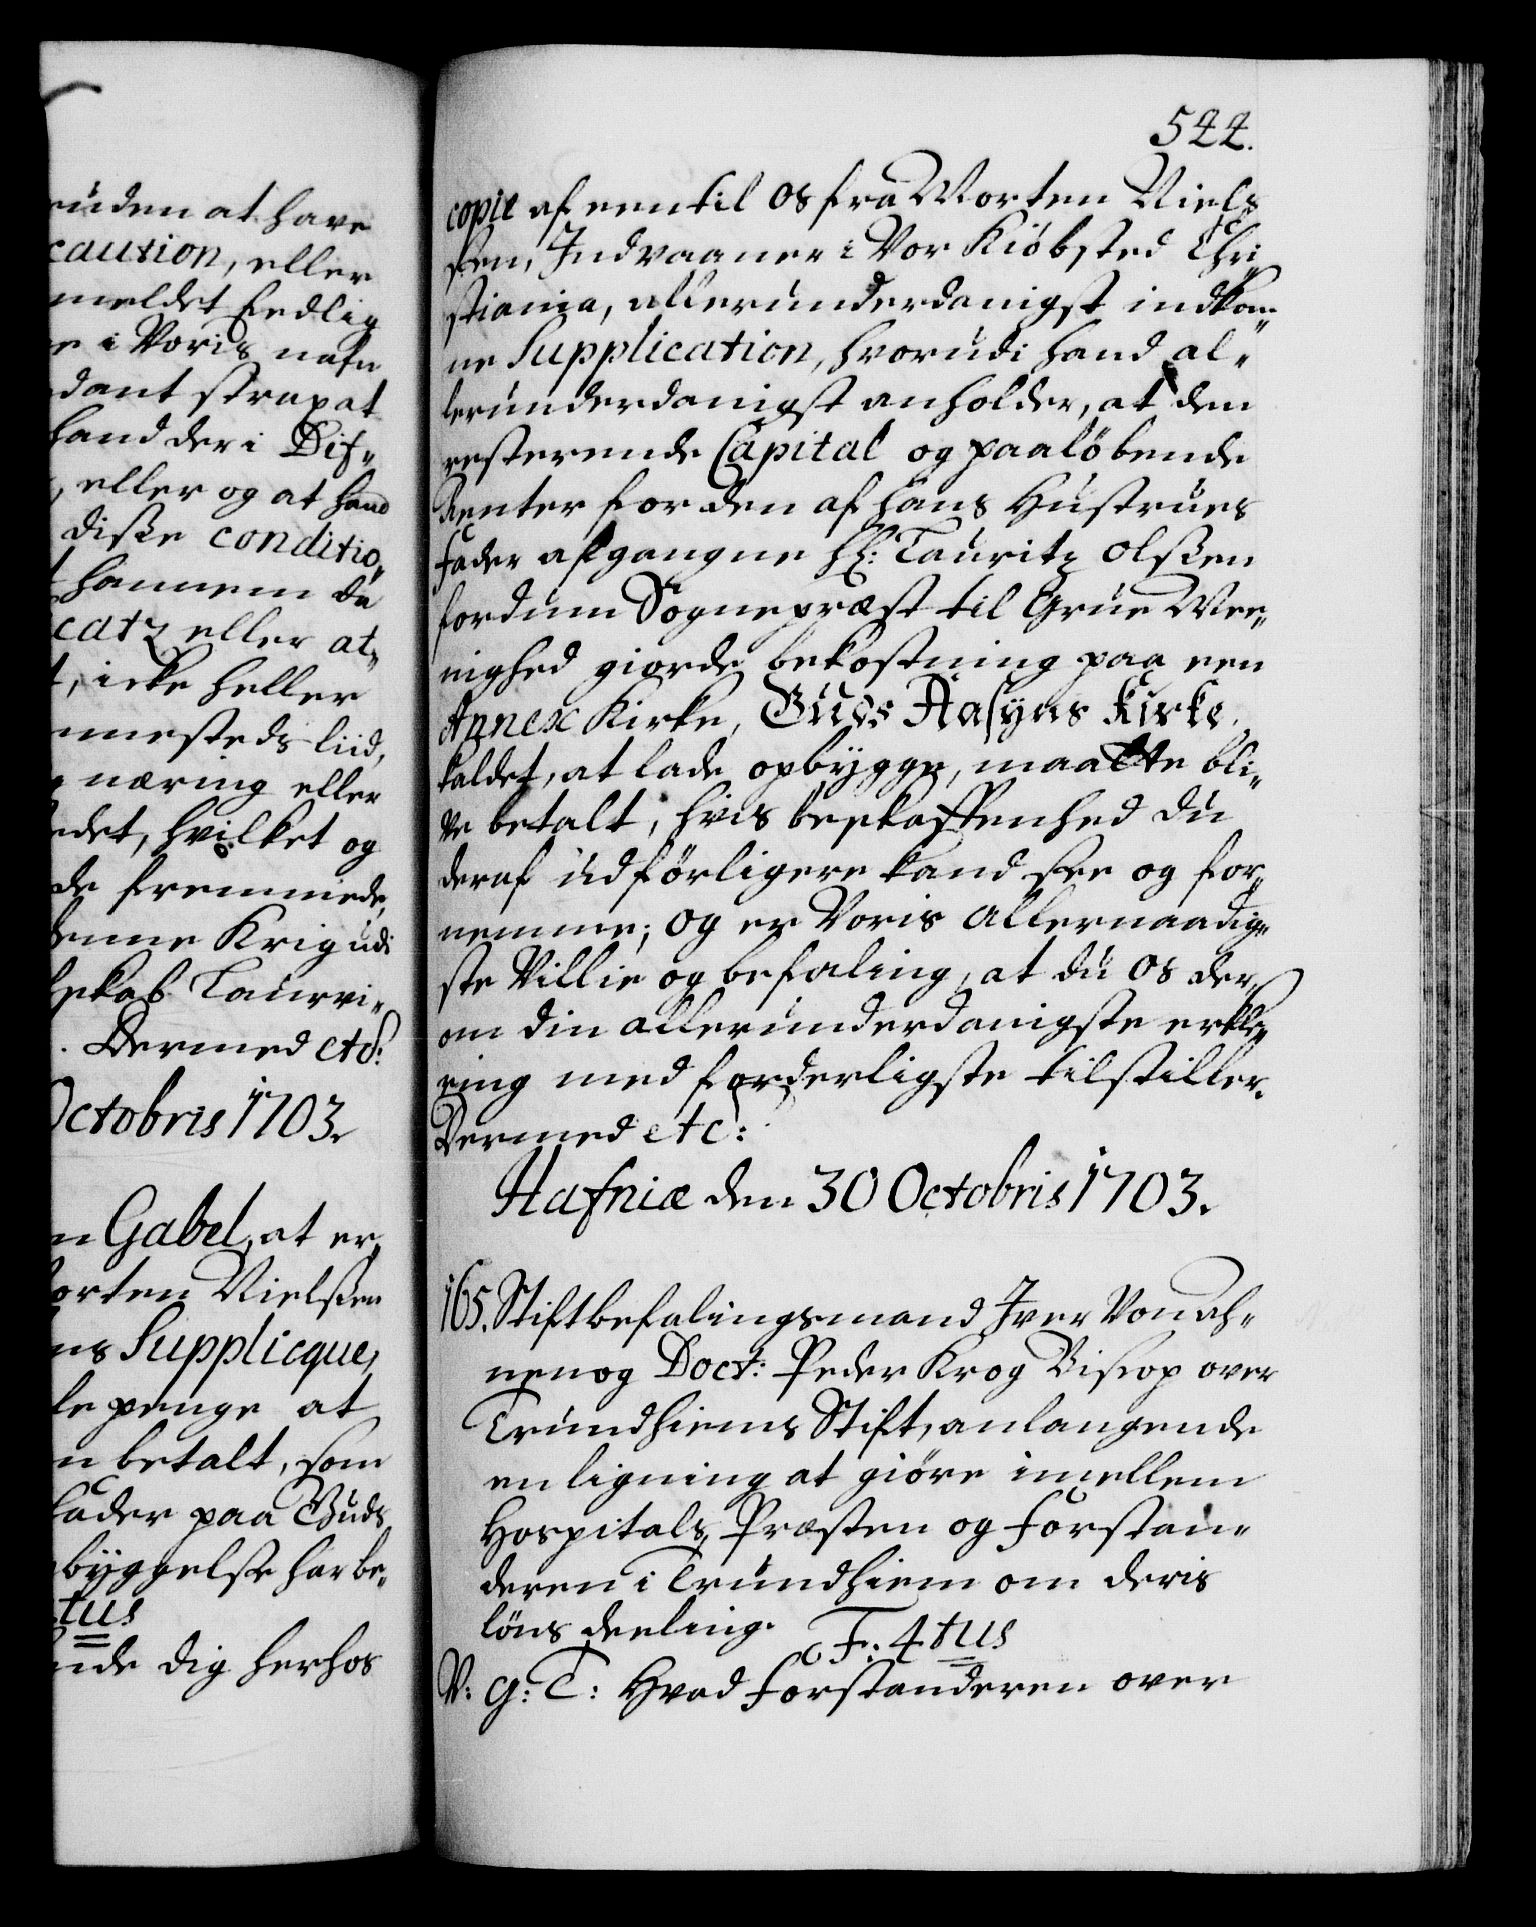 ruden at have
caution, eller
meldet Endlig
e i Voris nafn
dant strax at
hand der i Dis„
, eller og at hand
disse conditio„
t hannem da
catz eller at„
t, icke heller
nmesteds liid,
næring eller
edet, hvilket og
de fremmede,
denne Krig udi
skab Laurvi„
. Dermed etc:
Octobris 1703.
n Gabel, at er„
orten Nielssen
ns Supplicque,
le penge at
n betalt, som
fader paa Guds
byggelse har be„
tus
nde dig herhos
544.
copie af een til os fra Morten Niels„
sen, Indvaaner i Vor Kiöbsted Chri„
stiania, allerunderdanigst indkom„
ne Supplication, hvorudi hand al„
lerunderdanigst anholder, at den
resterende Capital og paalöbende
Renter for den af hans Hustrues
Fader afgangne Hr: Lauritz Olssen
fordum Sognepræst til Grue Mee„
nighed giorde bekostning paa een
Annex Kirke, Guds Aasyns Kirke
kaldet, at lade opbygge, maatte bli„
ve betalt, hvis beskaffenhed du
deraf udförligere kand see og for„
nemme; og er Voris allernaadig„
ste Villie og befaling, at du os der„
om din allerunderdanigste erklæ„
ring med forderligste tilstiller.
Dermed etc:
Hafniæ den 30 Octobris 1703.
165. Stiftbefalingsmand Iver Von Ah„
nen og Doct: Peder Krog Bissop over
Trundhiems Stift, anlangende
en ligning at giöre imellem
Hospitals Præsten og Forstan„
deren i Trundhiem om deris
löns deeling. F: 4tus
V: G: T: Hvad Forstanderen over